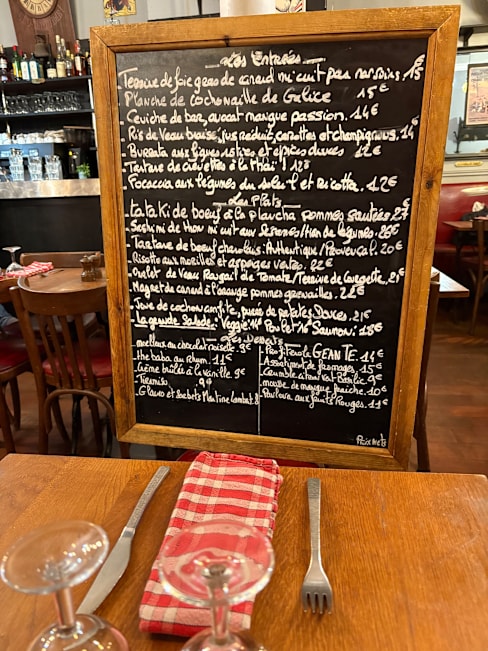 Les Entrées
Terrine de foie gras de canard mi cuit par nos soins 15
Planche de cochonaille de Galice 15€
Ceviche de bar, avocat mangue passion. 14€
Ris de Veau braisé, jus réduit, carottes et champignons. 14
Burrata aux figues rôties et épices douces 12€
Tartare de crevettes à la thaï ! 12€
Focaccia aux légumes du soleil et ricotta. 12€
Les Plats
tataki de boeuf à la plancha pommes sautées 27
Sashimi de thon mi cuit aux sésames/flan de légumes. 26€
Tartare de boeuf charolais: Authentique/Provençal. 20€
Risotto aux morilles et asperges vertes. 22€
de Veau Rougail de Tomate/Terrine de Courgette. 21€
Magret de canard à l'orange pommes grenailles. 22€
Joue de cochon confite, purée de patates Douces. 21€
La grande Salade: Veggie 14 Poulet 16 Saumon: 18€
Les Desserts
moelleux au chocolat noisette. 9€
the baba au rhum. 11€
Crème brûlée à la vanille. 9€
Tiramisu 9€
Glaces et Sorbets Martine Lambert 8
Profiterole GEANTE. 14€
Assortiment de fromages. 15€
Crumble citron vert Basilic 9€
mousse de mangue fraîche. 10€
Pavlova aux fruits Rouges. 11€
Prix nets